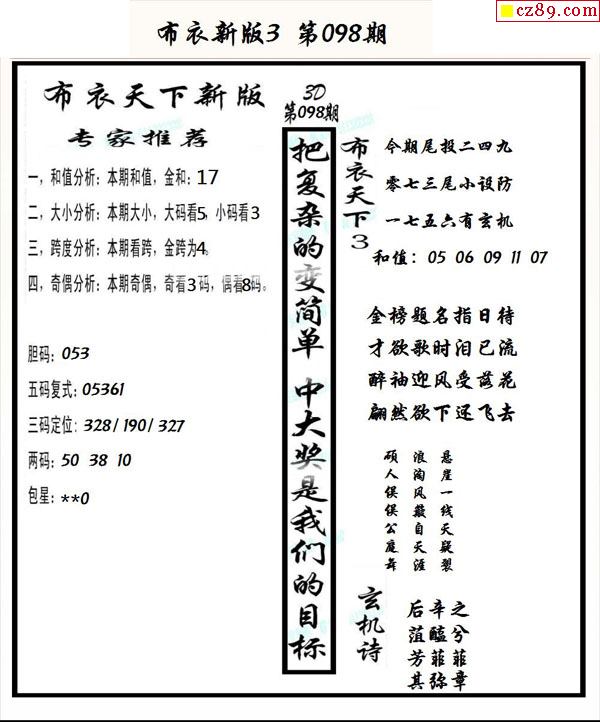 cz89.com
布衣新版3 第098期
布衣天下新版
专家推荐
一，和值分析：本期和值，金和：17
二，大小分析：本期大小，大码看5，小码看3
三，跨度分析：本期看跨，金跨为4。
四，奇偶分析：本期奇偶，奇看3码，偶看8码。
胆码：053
五码复式：05361
三码定位：328/190/327
两码：50 38 10
包星：**0
3D
第098期
把复杂的变简单 中大奖是我们的目标
布衣天下3
今期尾投二四九
零七三尾小设防
一七五六有玄机
和值：05 06 09 11 07
金榜题名指日待
才欲歌时泪已流
醉袖迎风受落花
翩然欲下还飞去
悬崖一线天疑裂
浪淘风簸自天涯
硕人俣俣公庭舞
玄机诗
后辛之
菹醢兮
芳菲菲
其弥章